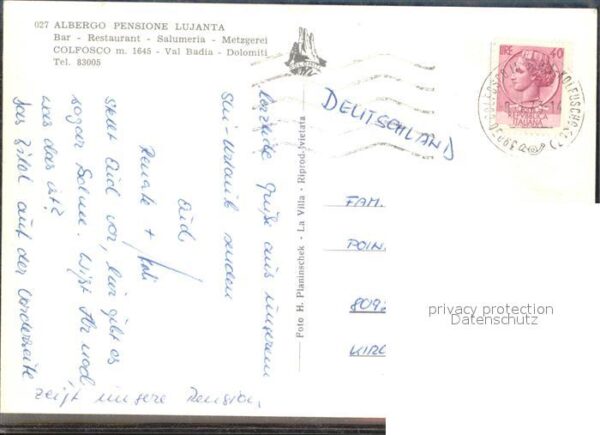 027 ALBERGO PENSIONE LUJANTA
Bar - Restaurant - Salumeria - Metzgerei
COLFOSCO m. 1645 - Val Badia - Dolomiti
Tel. 83005
Herzliche Grüße aus unserem
Ski-Urlaub senden
Euch
Renate +
Stellt Euch vor, hier gibt es
sogar Sonne. Wißt Ihr noch
was das ist?
Das Bild auf der Vorderseite
zeigt unsere Pension.
Foto H. Planinschek - La Villa - Riprod. vietata
LIRE 40
REPUBBLICA
ITALIANA
DEUTSCHLAND
FAM.
POIN
809
KIRC
privacy protection
Datenschutz